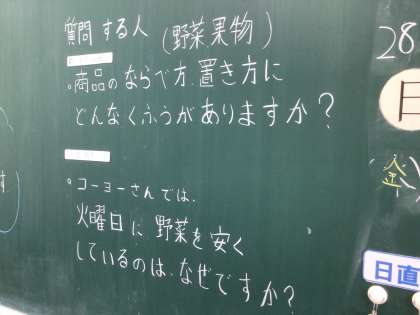 質問する人 (野菜果物)
。商品のならべ方、置き方に
どんなくふうがありますか?
。コーヨーさんでは、
火曜日に野菜を安く
しているのは、なぜですか?
28
日
(金)
す
日直